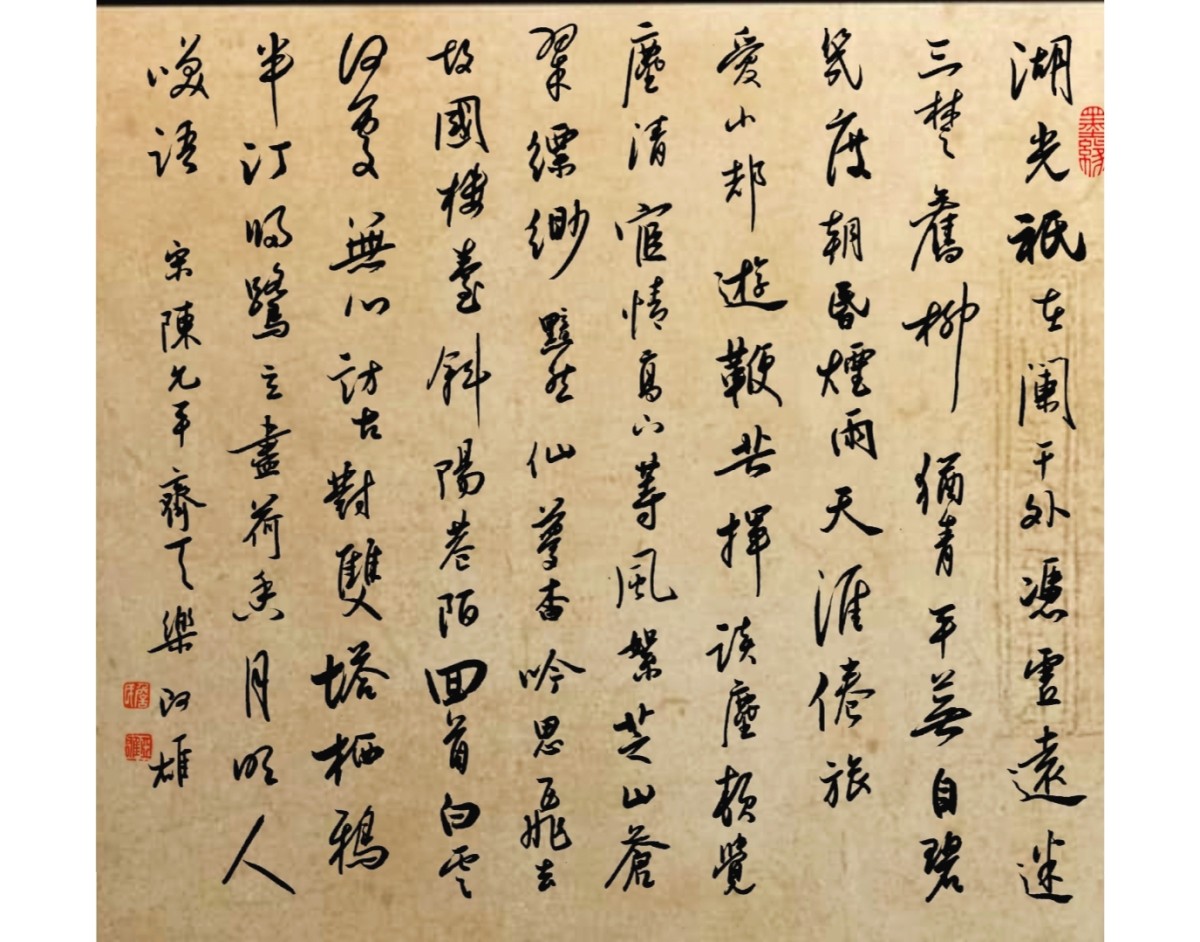 湖光祇在闌干外憑虛遠迷
三楚舊柳猶青平蕪自碧
幾度朝昏煙雨天涯倦旅
愛小却遊鞭共揮談麈頓覺
塵清宦情高下等風絮芝山蒼
翠縹緲黯然仙夢杳吟思飛去
故國樓臺斜陽巷陌回首白雲
何處無心訪古對雙塔栖鴉
半汀歸鷺立盡荷香月明人
笑語 宋陳允平齊天樂 雄